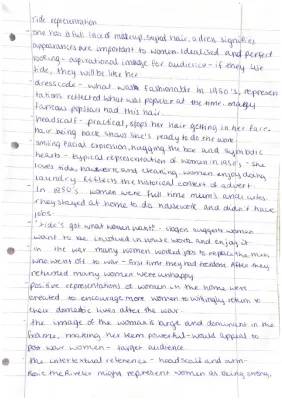 Tide representation
- one has a full face of makeup, styled hair, a dress signifies
appearances are important to women. Idealised and perfect
looking - aspirational image for audience - if they use
tide, they will be like her.
- dress code - what was fashionable in 1950's, represen
tations reflected what was popular at the time. many
famous popstars had this hair.
- headscarf - practical, stops her hair getting in her face.
hair being back shows she's ready to do the work.
- smiling facial expression, hugging the box and symbolic
hearts - typical representation of woman in 1950's - she
loves tide, housework and cleaning. Women enjoy doing
laundry. Reflects the historical context of advert.
- In 1950's women were full time mum's and wives.
They stayed at home to do housework and didn't have
jobs.
- "tide's got what women want" - slogan suggests women
want to be involved in house work and enjoy it
- in the war many women worked jobs to replace the men
who went off to war - first time they had freedom. After they
returned many women were unhappy.
- positive representations of women in the home were
created to encourage more women to willingly return to
their domestic lives after the war.
- the image of the woman is large and dominant in the
frame, making her seem powerful - would appeal to
post war women - target audience
- the intertextual reference - headscarf and arm -
Rosie the Riveter might represent women as being strong.